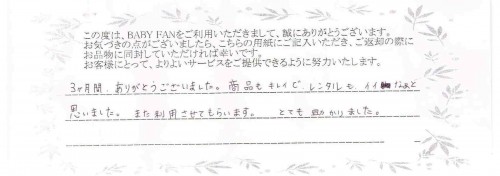 この度は、BABY FANをご利用いただきまして、誠にありがとうございます。
お気づきの点がございましたら、こちらの用紙にご記入いただき、ご返却の際に
お品物に同封していただければ幸いです。
お客様にとって、よりよいサービスをご提供できるように努力いたします。
3ヶ月間、ありがとうございました。商品もキレイで、レンタルも、イイなぁと
思いました。また利用させてもらいます。とても助かりました。